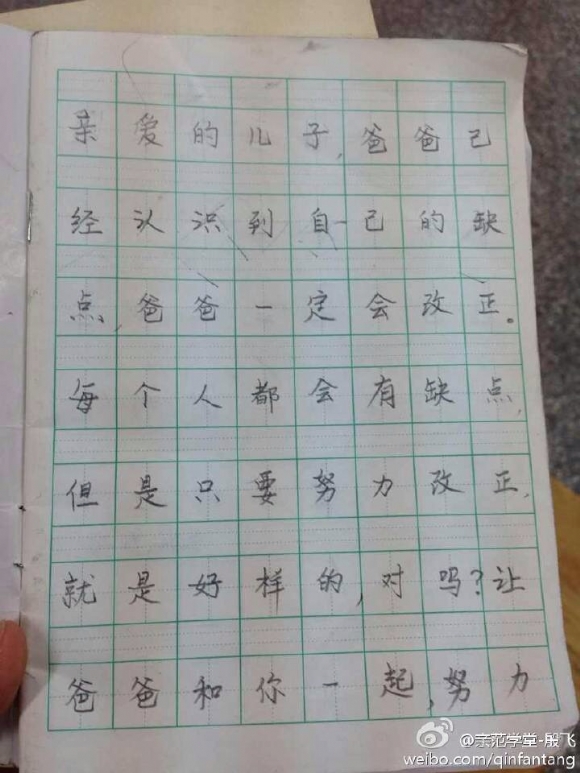 亲爱的儿子,爸爸已
经认识到自己的缺
点,爸爸一定会改正。
每个人都会有缺点,
但是只要努力改正,
就是好样的,对吗?让
爸爸和你一起,努力
@亲范学堂-殷飞
weibo.com/qinfantang